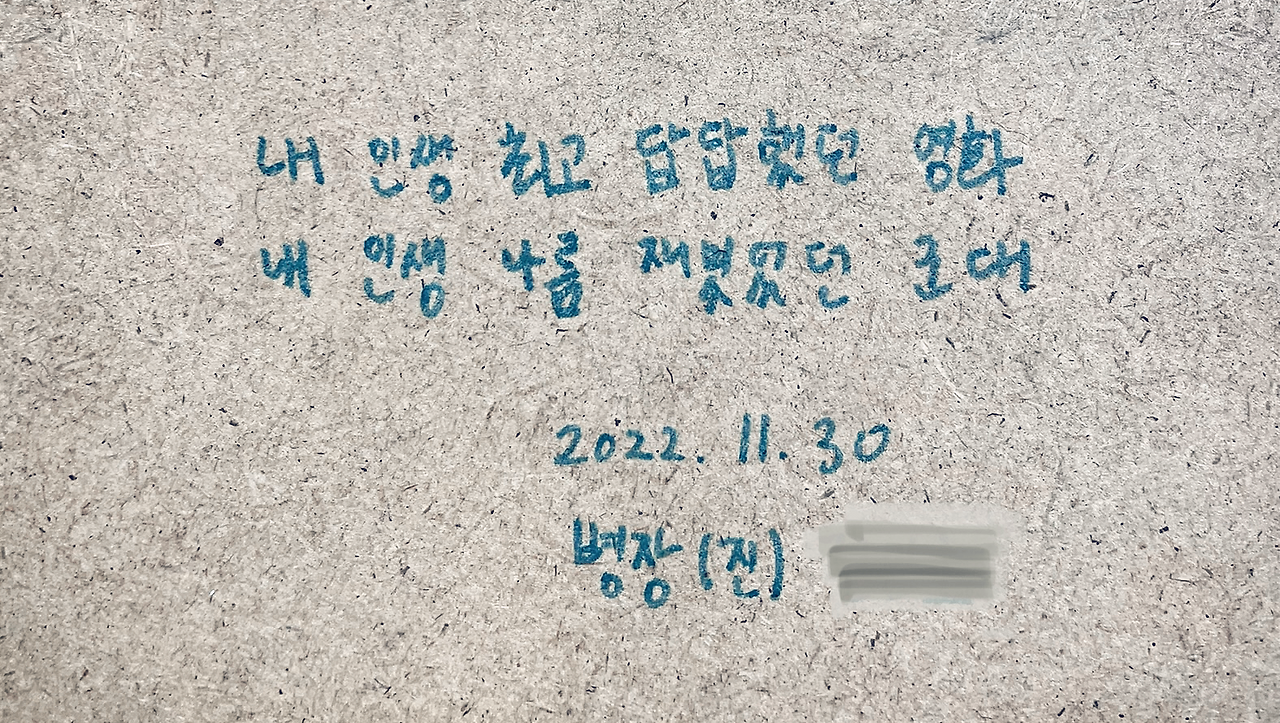 내 인생 최고 답답했던 영화
내 인생 나름 재밌었던 군대
2022. 11. 30
병장(진)